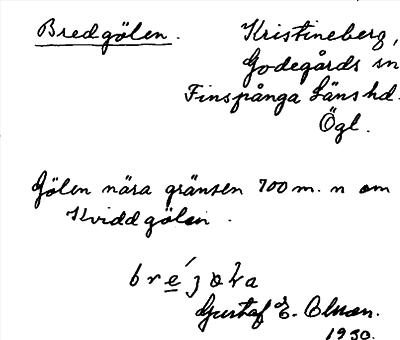 Bredgölen. Kristineberg,
Godegårds sn
Finspånga Läns hd.
Ögl.
Gölen nära gränsen 700 m. n om
Kviddgölen.
Gustaf E. Olsson.
1930.